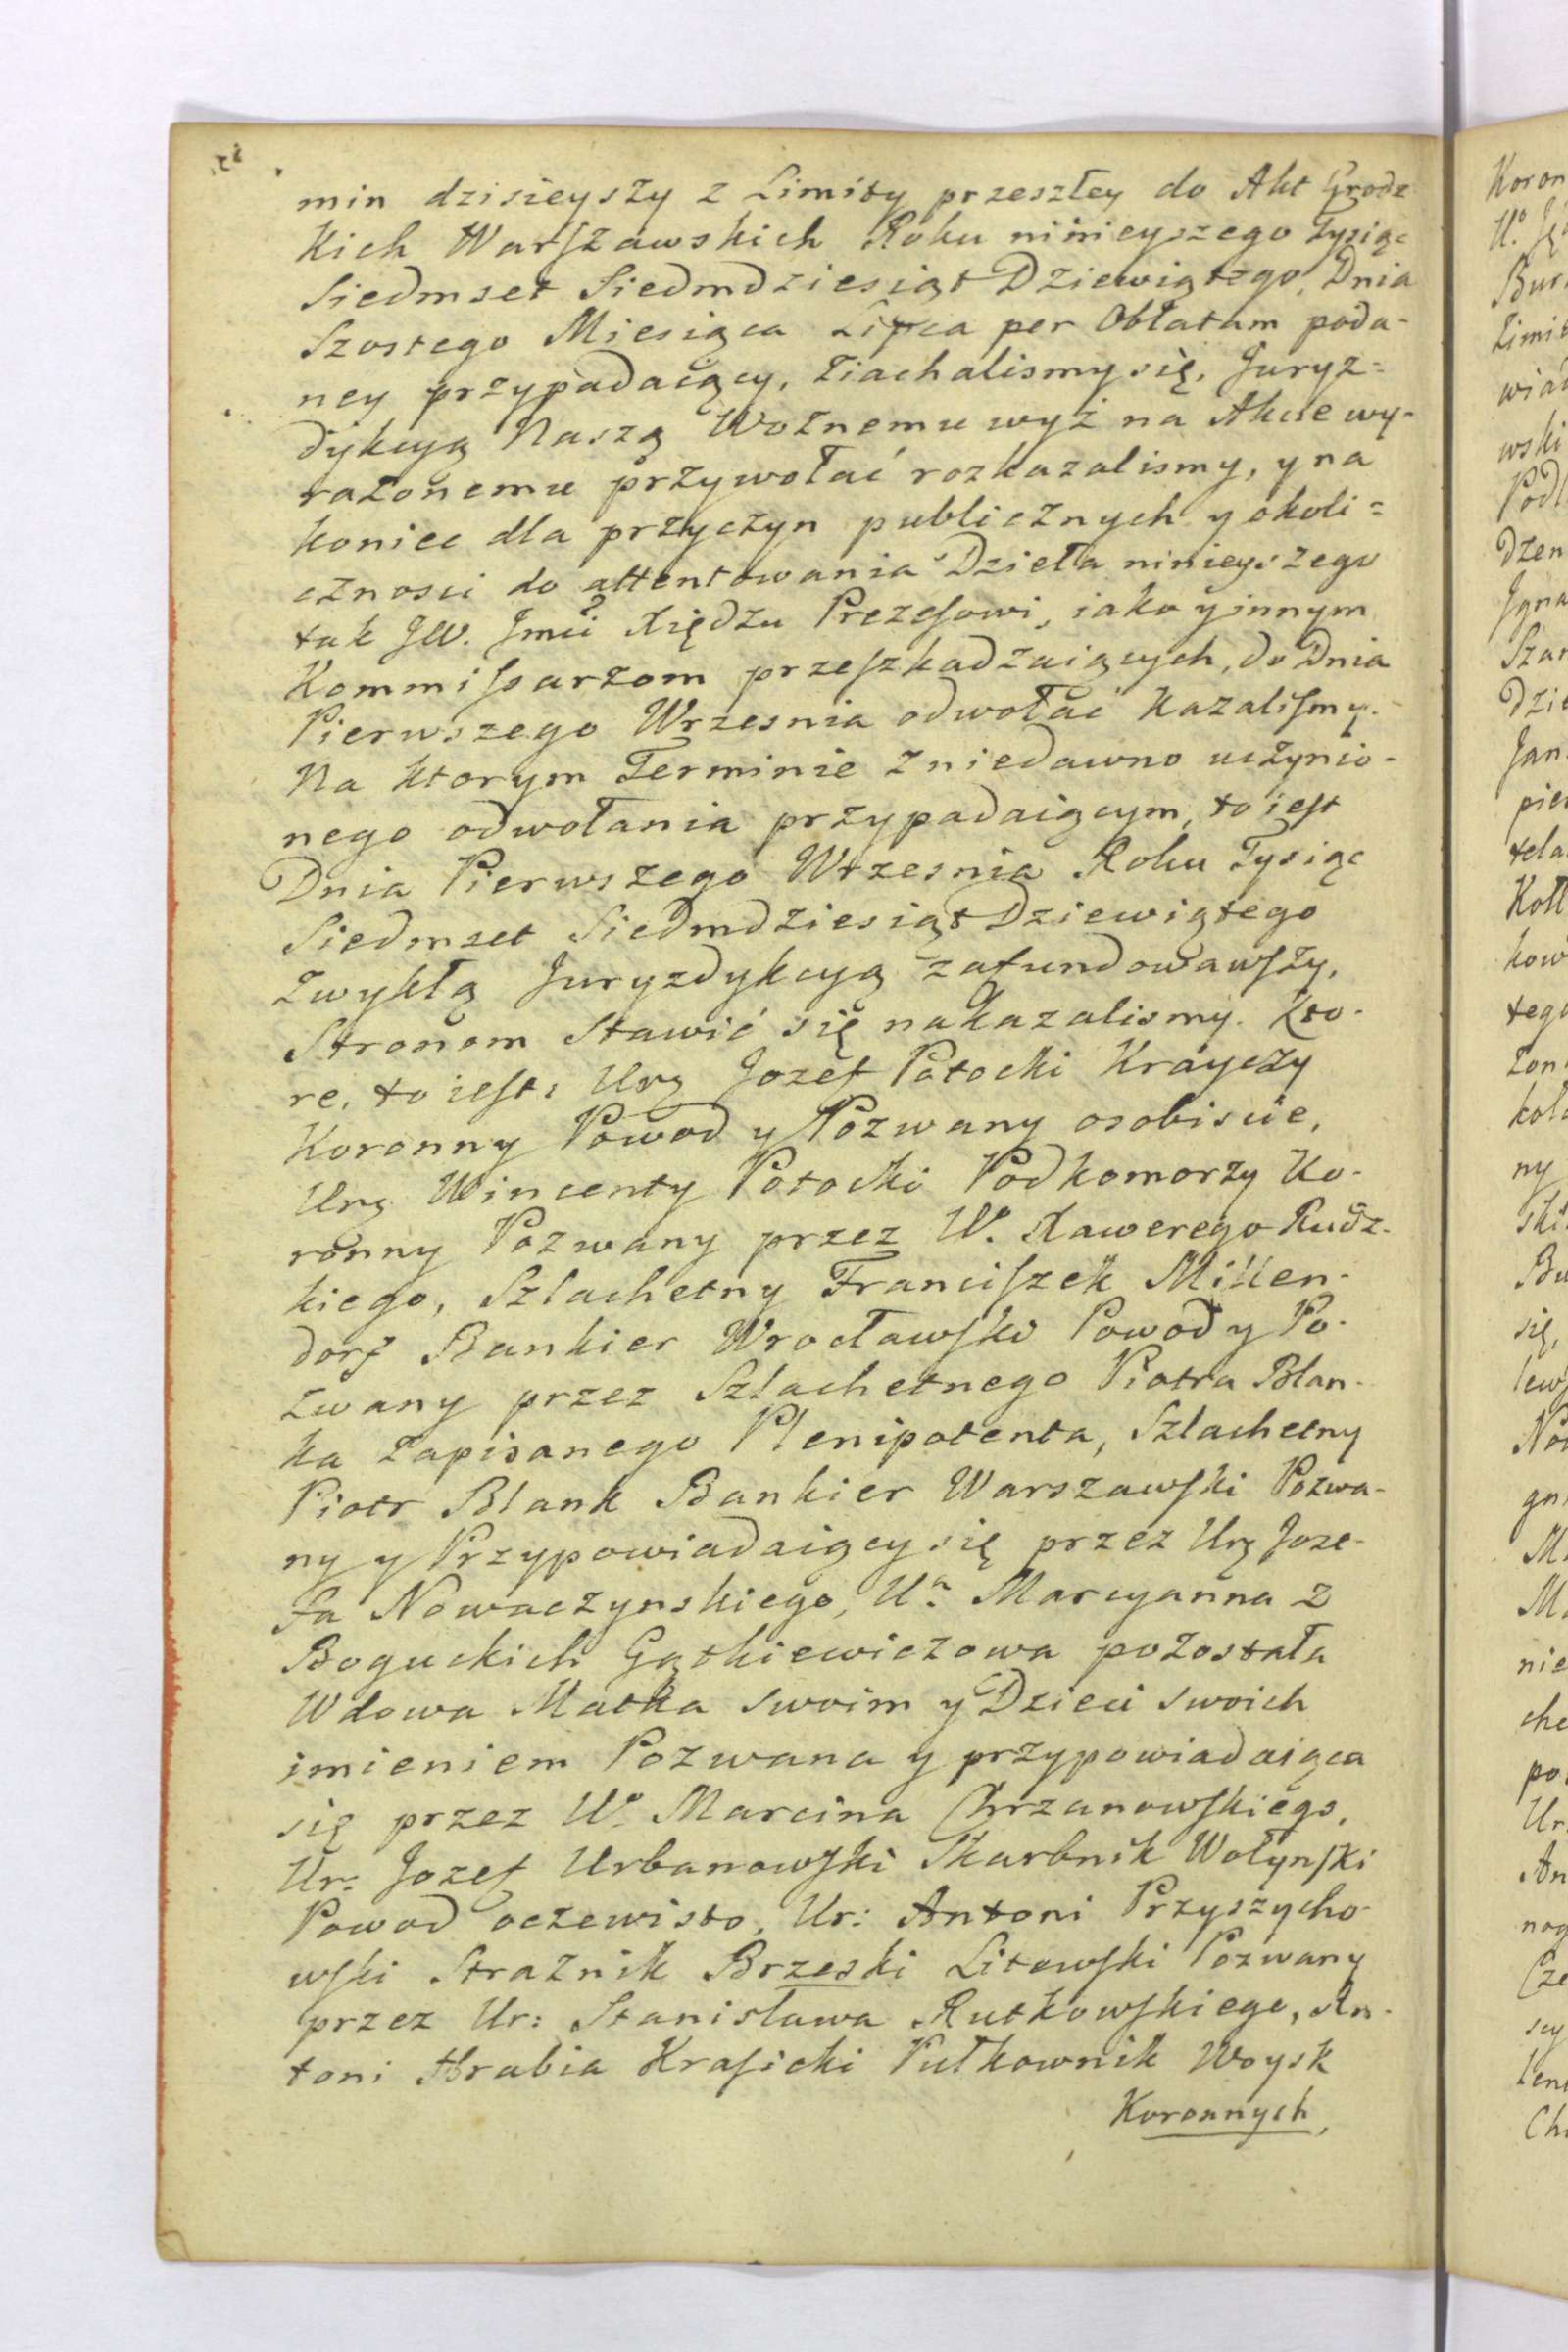 min dzisieyszy z Limity przeszłey do Akt Grodz
kich Warszawskich Roku ninieyszego Tysiąc
Siedmset Siedmdziesiąt Dziewiątego, Dnia
Szostego Miesiąca Lipca per Oblatam poda-
ney przypadaiący, ziachalismy się, Juryz=
dykcyą Naszą Woznemu wyż na Akcie wy-
rażonemu przywołać rozkazalismy, y na
koniec dla przyczyn publicznych y okoli=
cznosci do attentowania Dzieła ninieyszego
tak JW. Jmci Xiędzu Prezesowi, iako y innym
Kommissarzom przeszkadzaiących, do Dnia
Pierwszego Wrzesnia odwołać kazalismy.
Na ktorym Terminie z niedawno uczynio-
nego odwołania przypadaiącym, to iest
Dnia Pierwszego Wrzesnia Roku Tysiąc
Siedmset Siedmdziesiąt Dziewiątego
zwykłą Juryzdykcyą zafundowawszy,
Stronom stawić się nakazalismy. Kto-
re, to iest: Urz Jozef Potocki Krayczy
Koronny Powod y Pozwany osobiscie,
Urz Wincenty Potocki Podkomorzy Ko-
ronny Pozwany przez W. Xawerego Rudz-
kiego, Szlachetny Franciszek Millen-
dorf Bankier Wrocławsko Powod y Po-
zwany przez Szlachetnego Piotra Blan-
ka zapisanego Plenipotenta, Szlachetny
Piotr Blank Bankier Warszawski Pozwa-
ny y Przypowiadaiący się przez Urz Joze-
fa Nowaczynskiego, Uª. Marcyanna z
Boguckich Gątkiewiczowa pozostała
Wdowa Matka swoim y Dzieci swoich
imieniem Pozwana y przypowiadaiąca
się przez Uº Marcina Chrzanowskiego,
Ur: Jozef Urbanowski Skarbnik Wołynski
Powod oczewisto, Ur: Antoni Przyszycho-
wski Straznik Brzeski Litewski Pozwany
przez Ur: Stanisława Rutkowskiego, An-
toni Hrabia Krasicki Pułkownik Woysk
Koronnych,